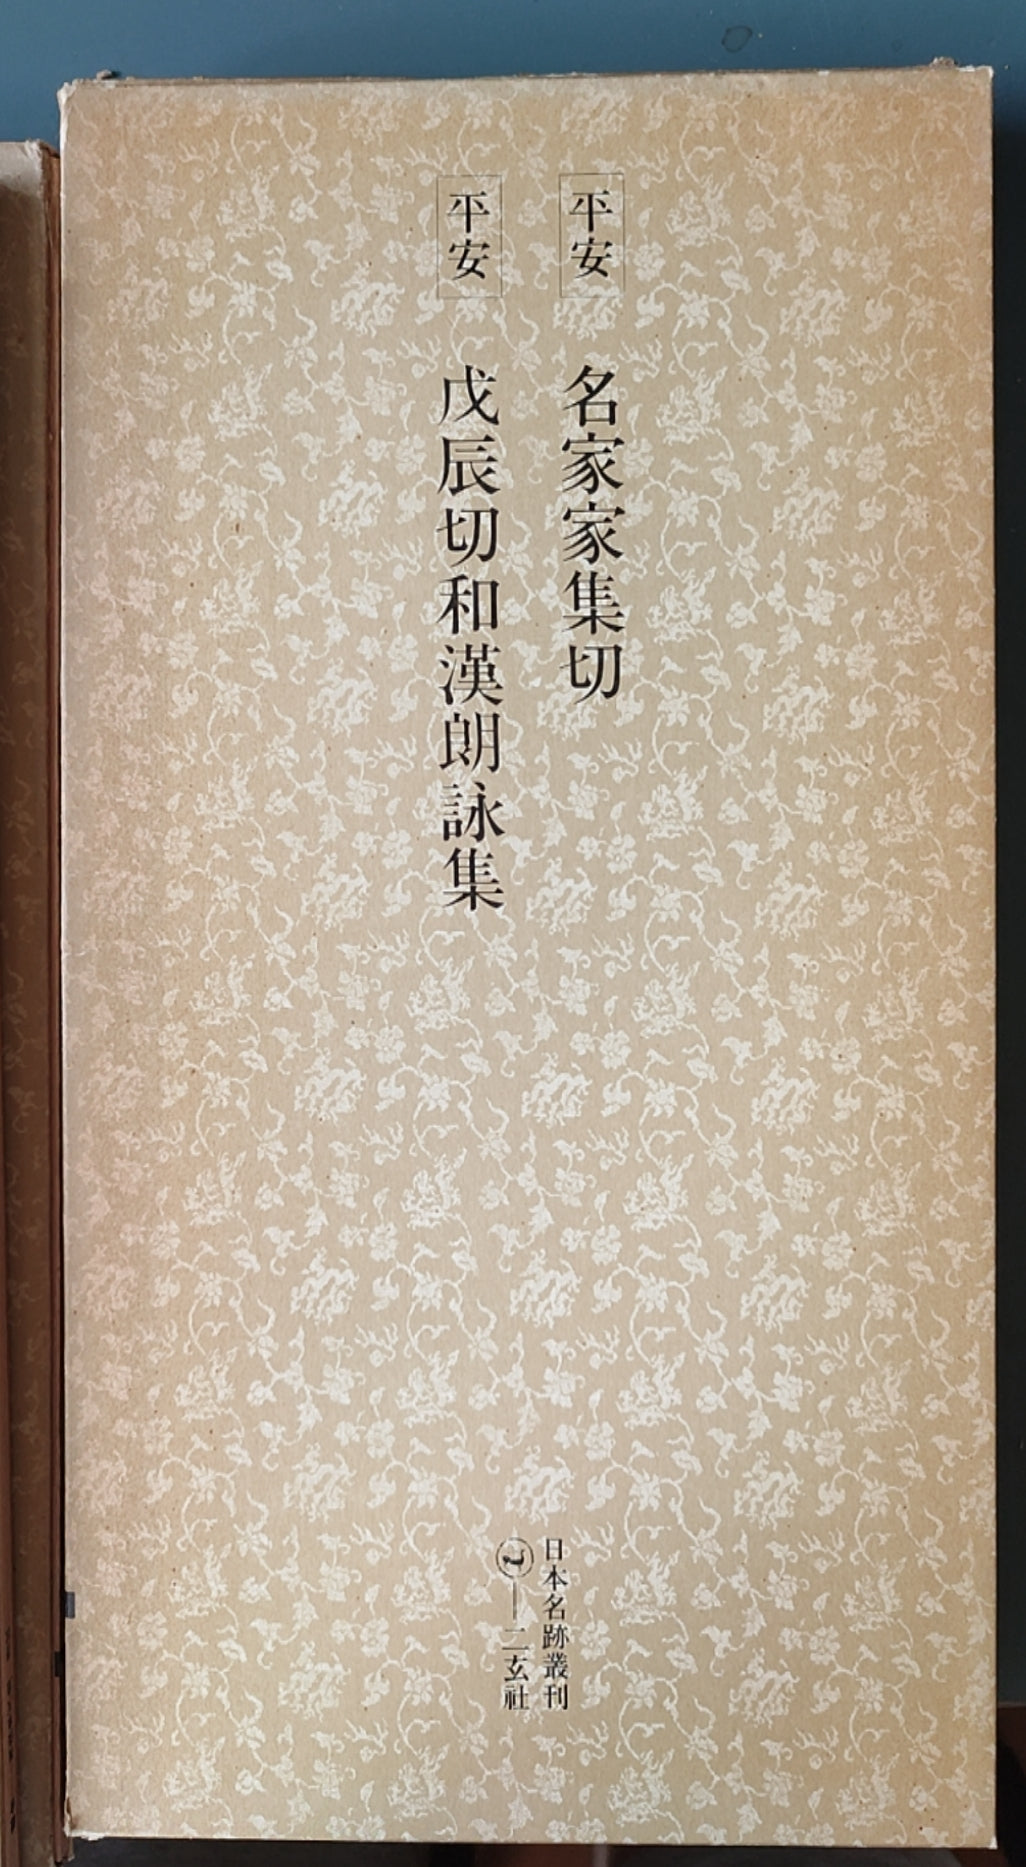 平安 名家家集切
平安 戊辰切和漢朗詠集
日本名跡叢刊
二玄社